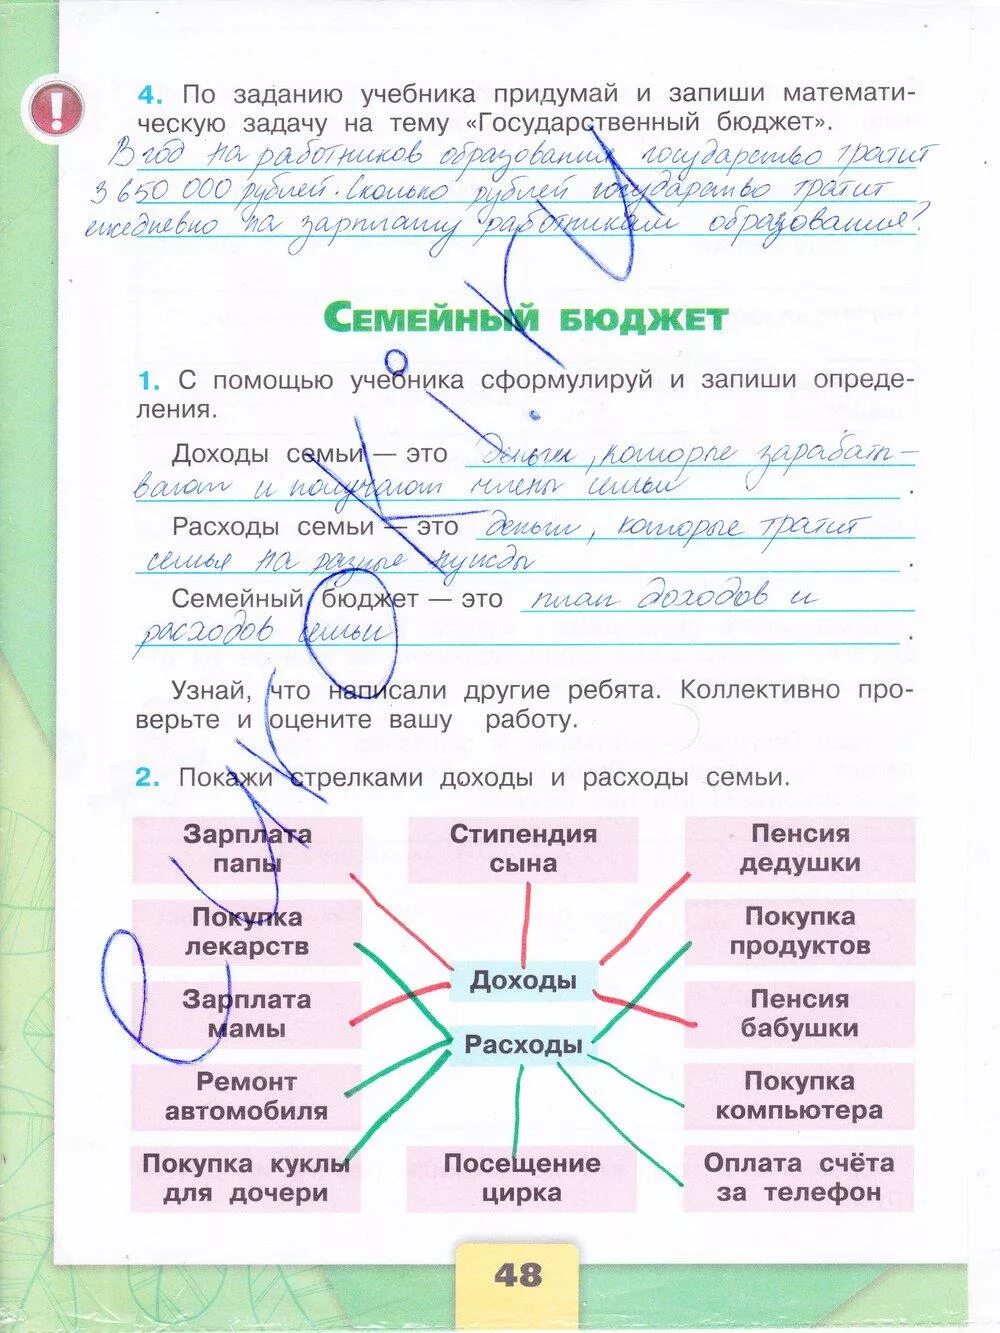 4. По заданию учебника придумай и запиши математи-
ческую задачу на тему «Государственный бюджет».
В год на работников образования государство тратит
3 650 000 рублей. Сколько рублей государство тратит
ежедневно на зарплату работникам образования?
Семейный бюджет
1. С помощью учебника сформулируй и запиши опреде-
ления.
Доходы семьи — это деньги, которые зарабаты-
вают и получают члены семьи.
Расходы семьи — это деньги, которые тратит
семья на разные нужды.
Семейный бюджет — это план доходов и
расходов семьи.
Узнай, что написали другие ребята. Коллективно про-
верьте и оцените вашу работу.
2. Покажи стрелками доходы и расходы семьи.
Зарплата папы
Стипендия сына
Пенсия дедушки
Покупка лекарств
Покупка продуктов
Доходы
Зарплата мамы
Пенсия бабушки
Расходы
Ремонт автомобиля
Покупка компьютера
Покупка куклы для дочери
Посещение цирка
Оплата счёта за телефон
48